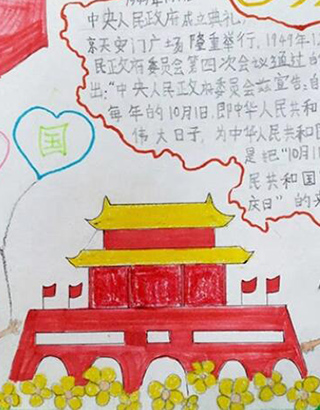 中央人民政府成立典礼,
京天安门广场隆重举行,1949年12
民政府委员会第四次会议通过的
出:"中央人民政府委员会兹宣告:自
每年的10月1日,即中华人民共和
伟大日子,为中华人民共和国
是把"10月1日
民共和国
庆日"的来
国